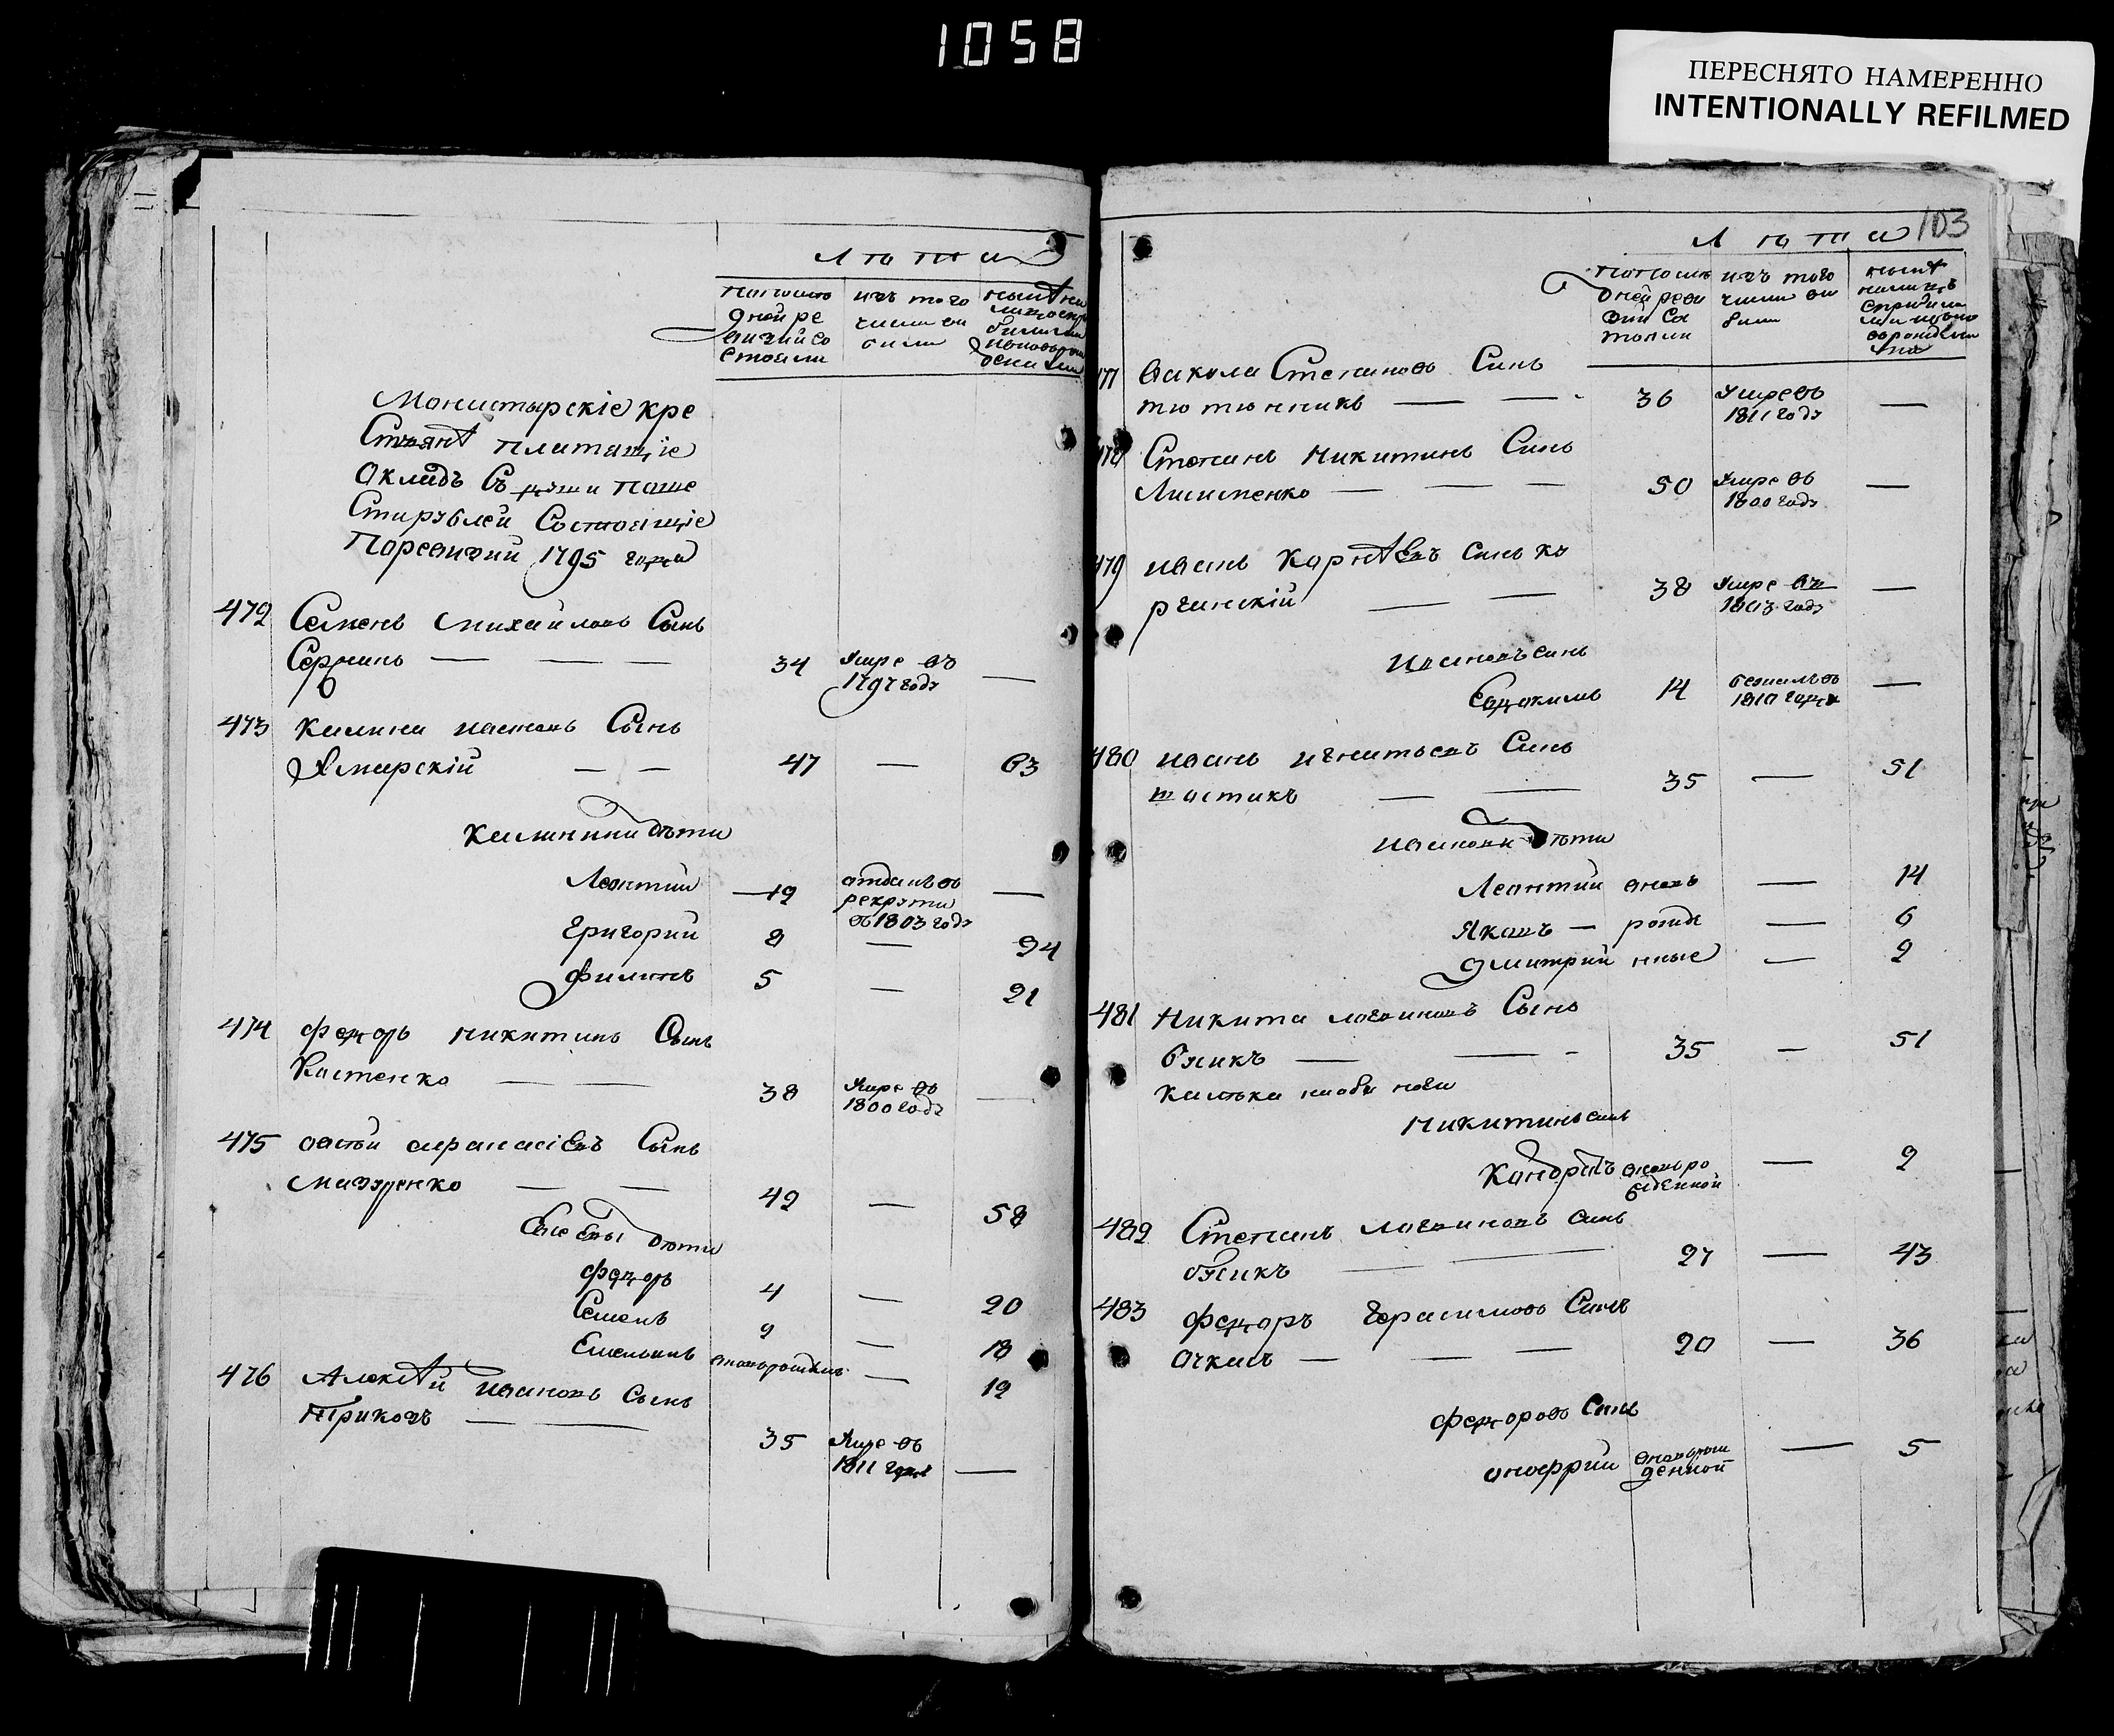 1058
ПЕРЕСНЯТО НАМЕРЕННО
INTENTIONALLY REFILMED
Лѣта
попослѣ
дней ре
визии со
стояли
изъ того
числа вы
были
нынѣ на
Монастырскіе кре
стьянѣ платящіе
окладъ съ души по ше
сти рублей состоящіе
по ревизии 1795 года
472 Семенъ Михайловъ Сынъ
34 умре въ
1797 годѵ —
473 Калина Ивановъ Сынъ
Ямпрскій — — 47 — 63
Калинины дѣти
Леонтий — 19 отданъ въ
рекруты
въ 1803 годѵ —
Григорий 8 — 24
Филипъ 5 — 21
474 Федоръ Никитинъ Сынъ
Костенко — — 38 умре въ
1800 годѵ —
475 Овсѣй Афанасіевъ Сынъ
Мазуренко — — 42 — 58
дѣти
Федоръ 4 — 20
Семенъ 2 — 18
Емельянъ вновьрожденъ — 12
476 Алексѣй Ивановъ Сынъ
35 умре въ
1811 году —
103
Лѣта
попослѣ
дней реви
зии со
стояли
изъ того
числа вы
были
нынѣ
477 Вакола Степановъ Сынъ
тютюнникъ — — 36 умре въ
1811 годѵ —
478 Степанъ Никитинъ Синъ
— — — 50 умре въ
1800 годѵ —
479 Иванъ Корнѣевъ синъ ку
рчинскій — — 38 умре въ
1803 годѵ —
Ивановъ синъ
Евдокимъ 14 бежалъ въ
1810 году —
480 Иванъ Игнатьевъ Синъ
шостикъ — — 35 — 51
Ивановы дѣти
Леонтий вновь — 14
Яковъ — рожде — 6
Дмитрий нные — 2
481 Никита Логвиновъ Сынъ
бѵикъ — — - 35 — 51
калѣка на обѣ ноги
Никитинъ синъ
Кондратъ вновь ро
жденной — 2
482 Степанъ Логвиновъ синъ
бѵикъ — — 27 — 43
483 Федоръ Герасимовъ Синъ
Очкасъ — — — 20 — 36
Федоровъ Синъ
Онофрий вноврож
денной — 5